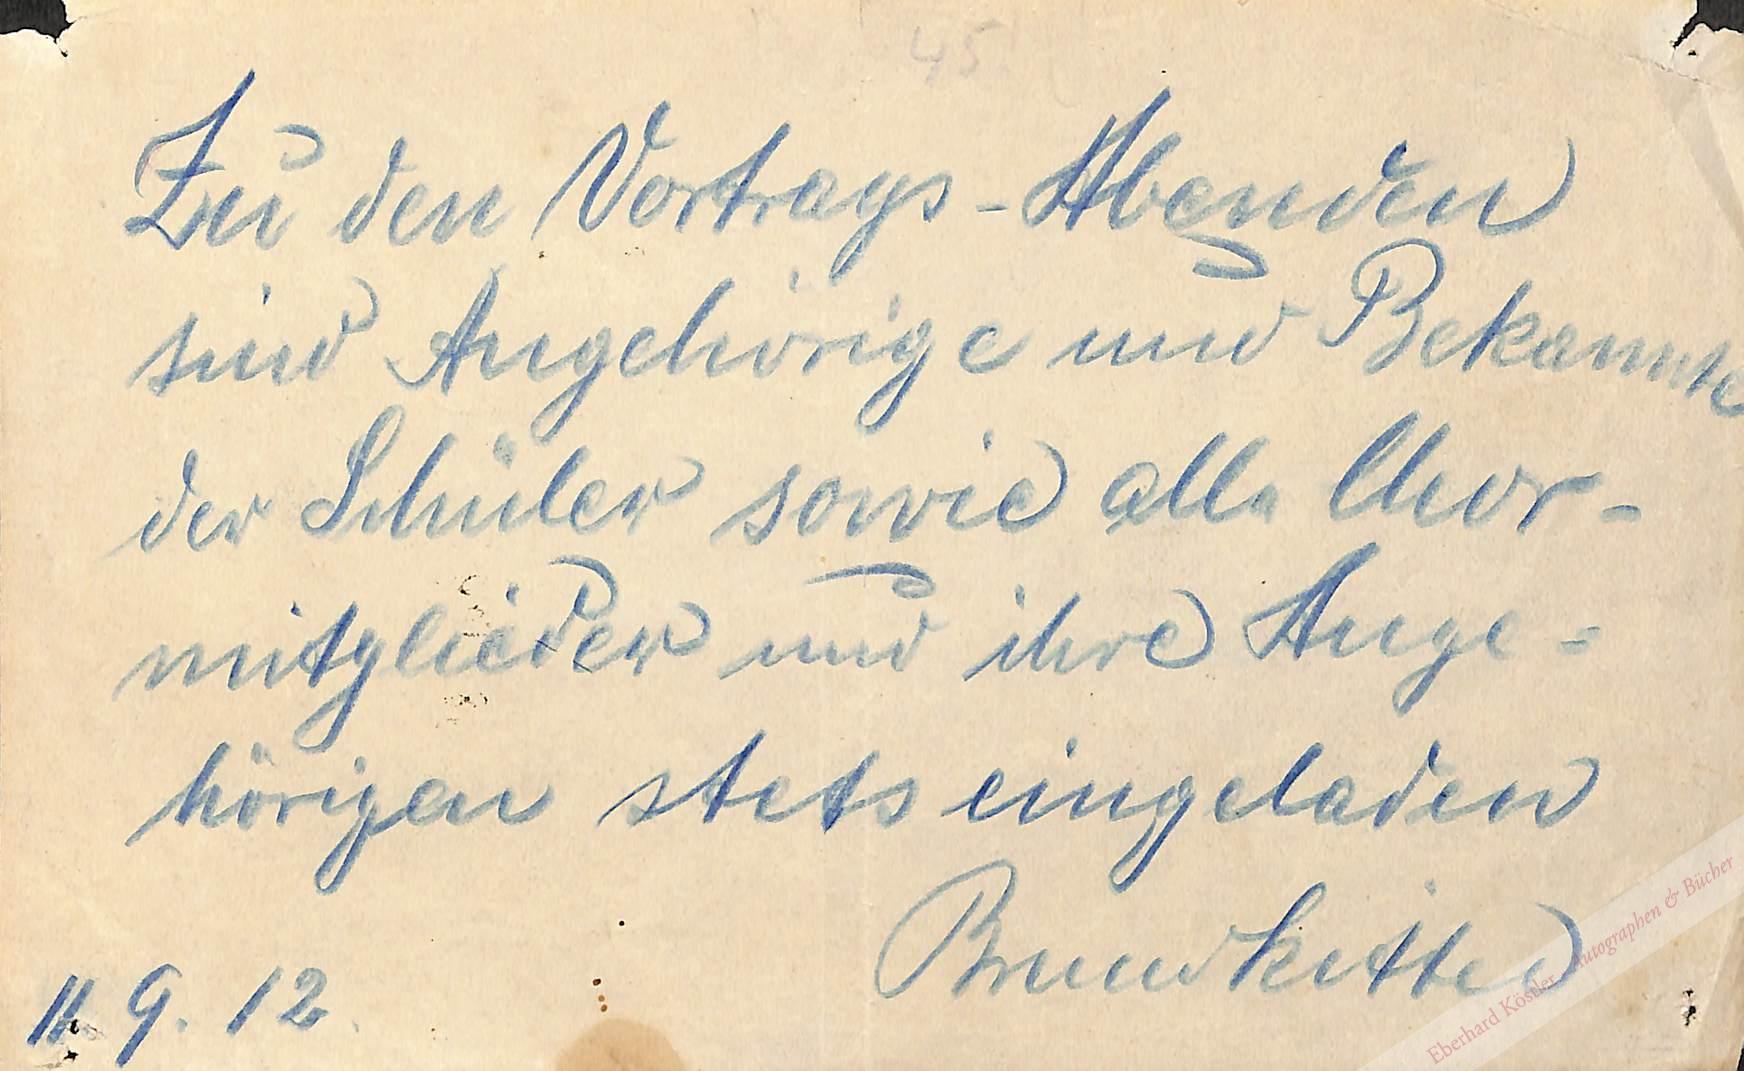 45.
Zu den Vortrags-Abenden
sind Angehörige und Bekannte
der Schüler sowie alle Chor-
mitglieder und ihre Ange=
hörigen stets eingeladen
Bruno Kittel
11. 9. 12.
Eberhard Köstler Autographen & Bücher